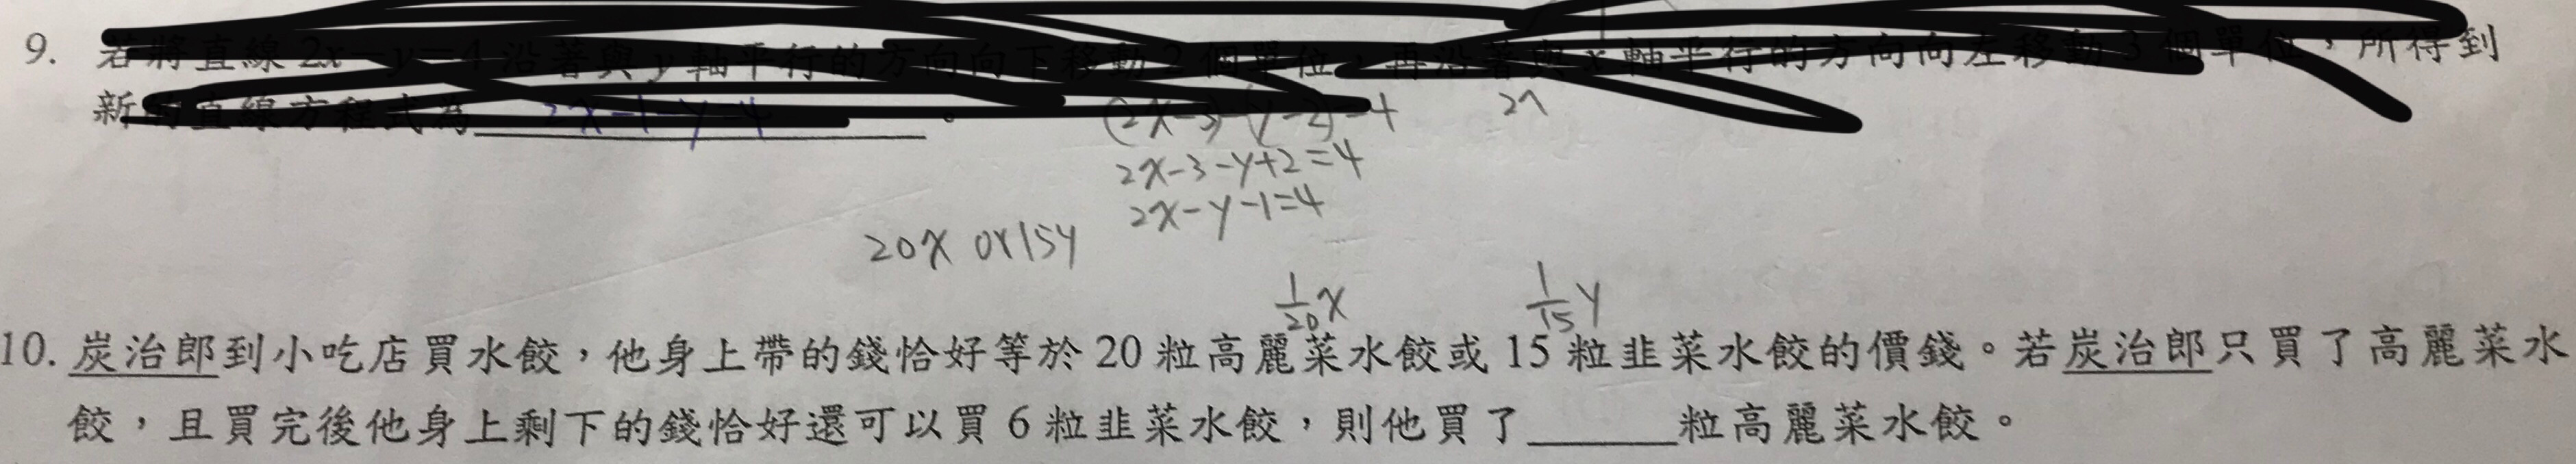 9. 若將直線 2x-y=4 沿著與 y 軸平行的方向向下移動 2 個單位,再沿著與 x 軸平行的方向向左移動 3 個單位,所得到
新的直線方程式為 。
(2x-3)-(y-2)=4
2x-3-y+2=4
2x-y-1=4
20x or 15y
1/20 x
1/15 y
10. 炭治郎到小吃店買水餃,他身上帶的錢恰好等於 20 粒高麗菜水餃或 15 粒韭菜水餃的價錢。若炭治郎只買了高麗菜水
餃,且買完後他身上剩下的錢恰好還可以買 6 粒韭菜水餃,則他買了______粒高麗菜水餃。